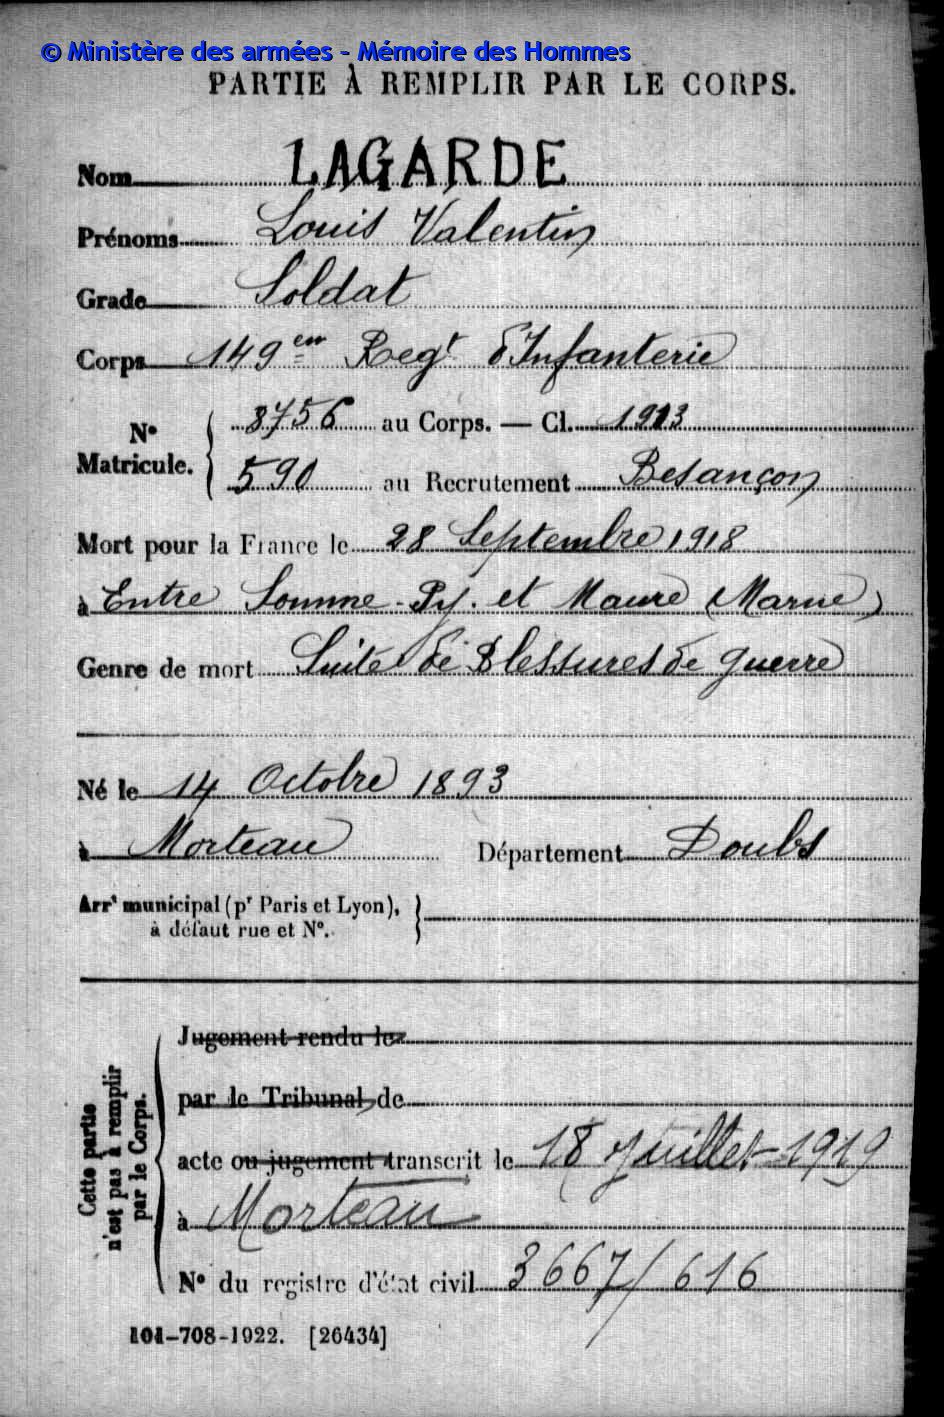 © Ministère des armées - Mémoire des Hommes
PARTIE À REMPLIR PAR LE CORPS.
Nom LAGARDE
Prénoms Louis Valentin
Grade Soldat
Corps 149em Regt d'Infanterie
N° Matricule. 8756 au Corps. — Cl. 1913
590 au Recrutement Besançon
Mort pour la France le 28 Septembre 1918
à Entre Somme-Py. et Maure (Marne)
Genre de mort Suite de Blessures de guerre
Né le 14 Octobre 1893
à Morteau Département Doubs
Arrt municipal (pr Paris et Lyon),
à défaut rue et N°.
Cette partie n'est pas à remplir par le Corps.
Jugement rendu le
par le Tribunal de
acte ou jugement transcrit le 18 Juillet 1919
à Morteau
N° du registre d'état civil 3667/616
101-708-1922. [26434]